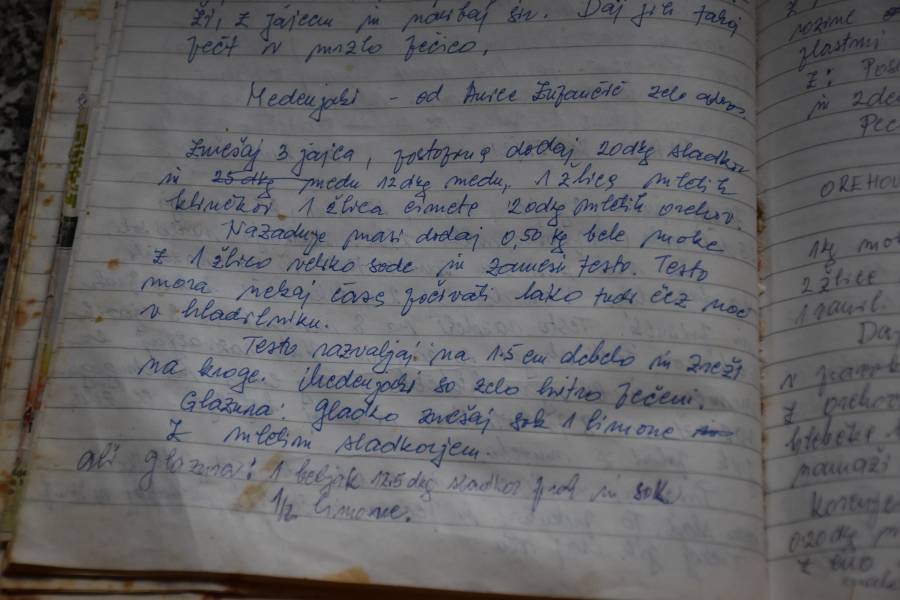 ži, z jajcem in naribaj sir. Daj jih takoj
pečt v mrzlo pečico.
Medenjaki - od Anice Župančič zelo dobro
Zmešaj 3 jajca, postopma dodaj 20dkg sladkor
in 25 dkg medu 12dkg medu, 1 žlica mletih
klinčkov 1 žlica cimeta 20dkg mletih orehov.
Nazadnje masi dodaj 0,50 kg bele moke
z 1 žlico veliko sode in zamesi testo. Testo
mora nekaj časa počivati lako tudi čez noč
v hladilniku.
Testo razvaljaj na 1.5 cm debelo in zreži
na kroge. Medenjaki so zelo hitro pečeni.
Glazura: gladko zmešaj sok 1 limone
z mletim sladkorjem.
ali glazura: 1 beljak 12.5 dkg sladkor prah in sok
1/2 limone.
rozine
z: 
in 2de
Pec
OREHOV
1kg mo
2 žlice
1 vanil.
Da
v
z orehov
namaži
0,20 dkg